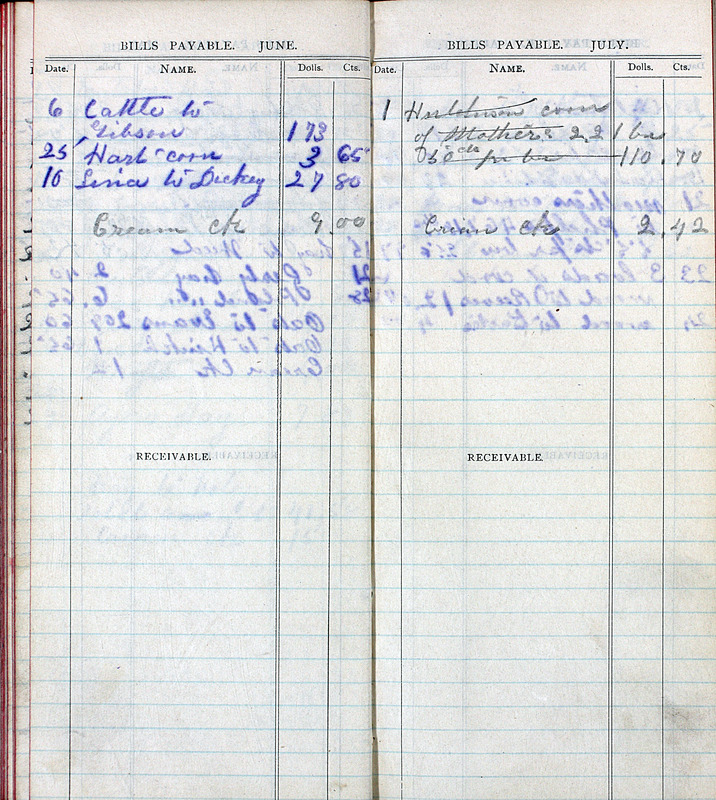 BILLS PAYABLE. JUNE.
Date. NAME. Dolls. Cts.
6 Cattle to
Gibson 173
25 Hart corn 3 65
10 to Dickey 27 80
Cream ck 9.00
RECEIVABLE.
BILLS PAYABLE. JULY.
Date. NAME. Dolls. Cts.
1 Hutchinson corn
of Mothers 221 bu
@ 50 cts per bu 110.70
Cream ck 2.42
RECEIVABLE.